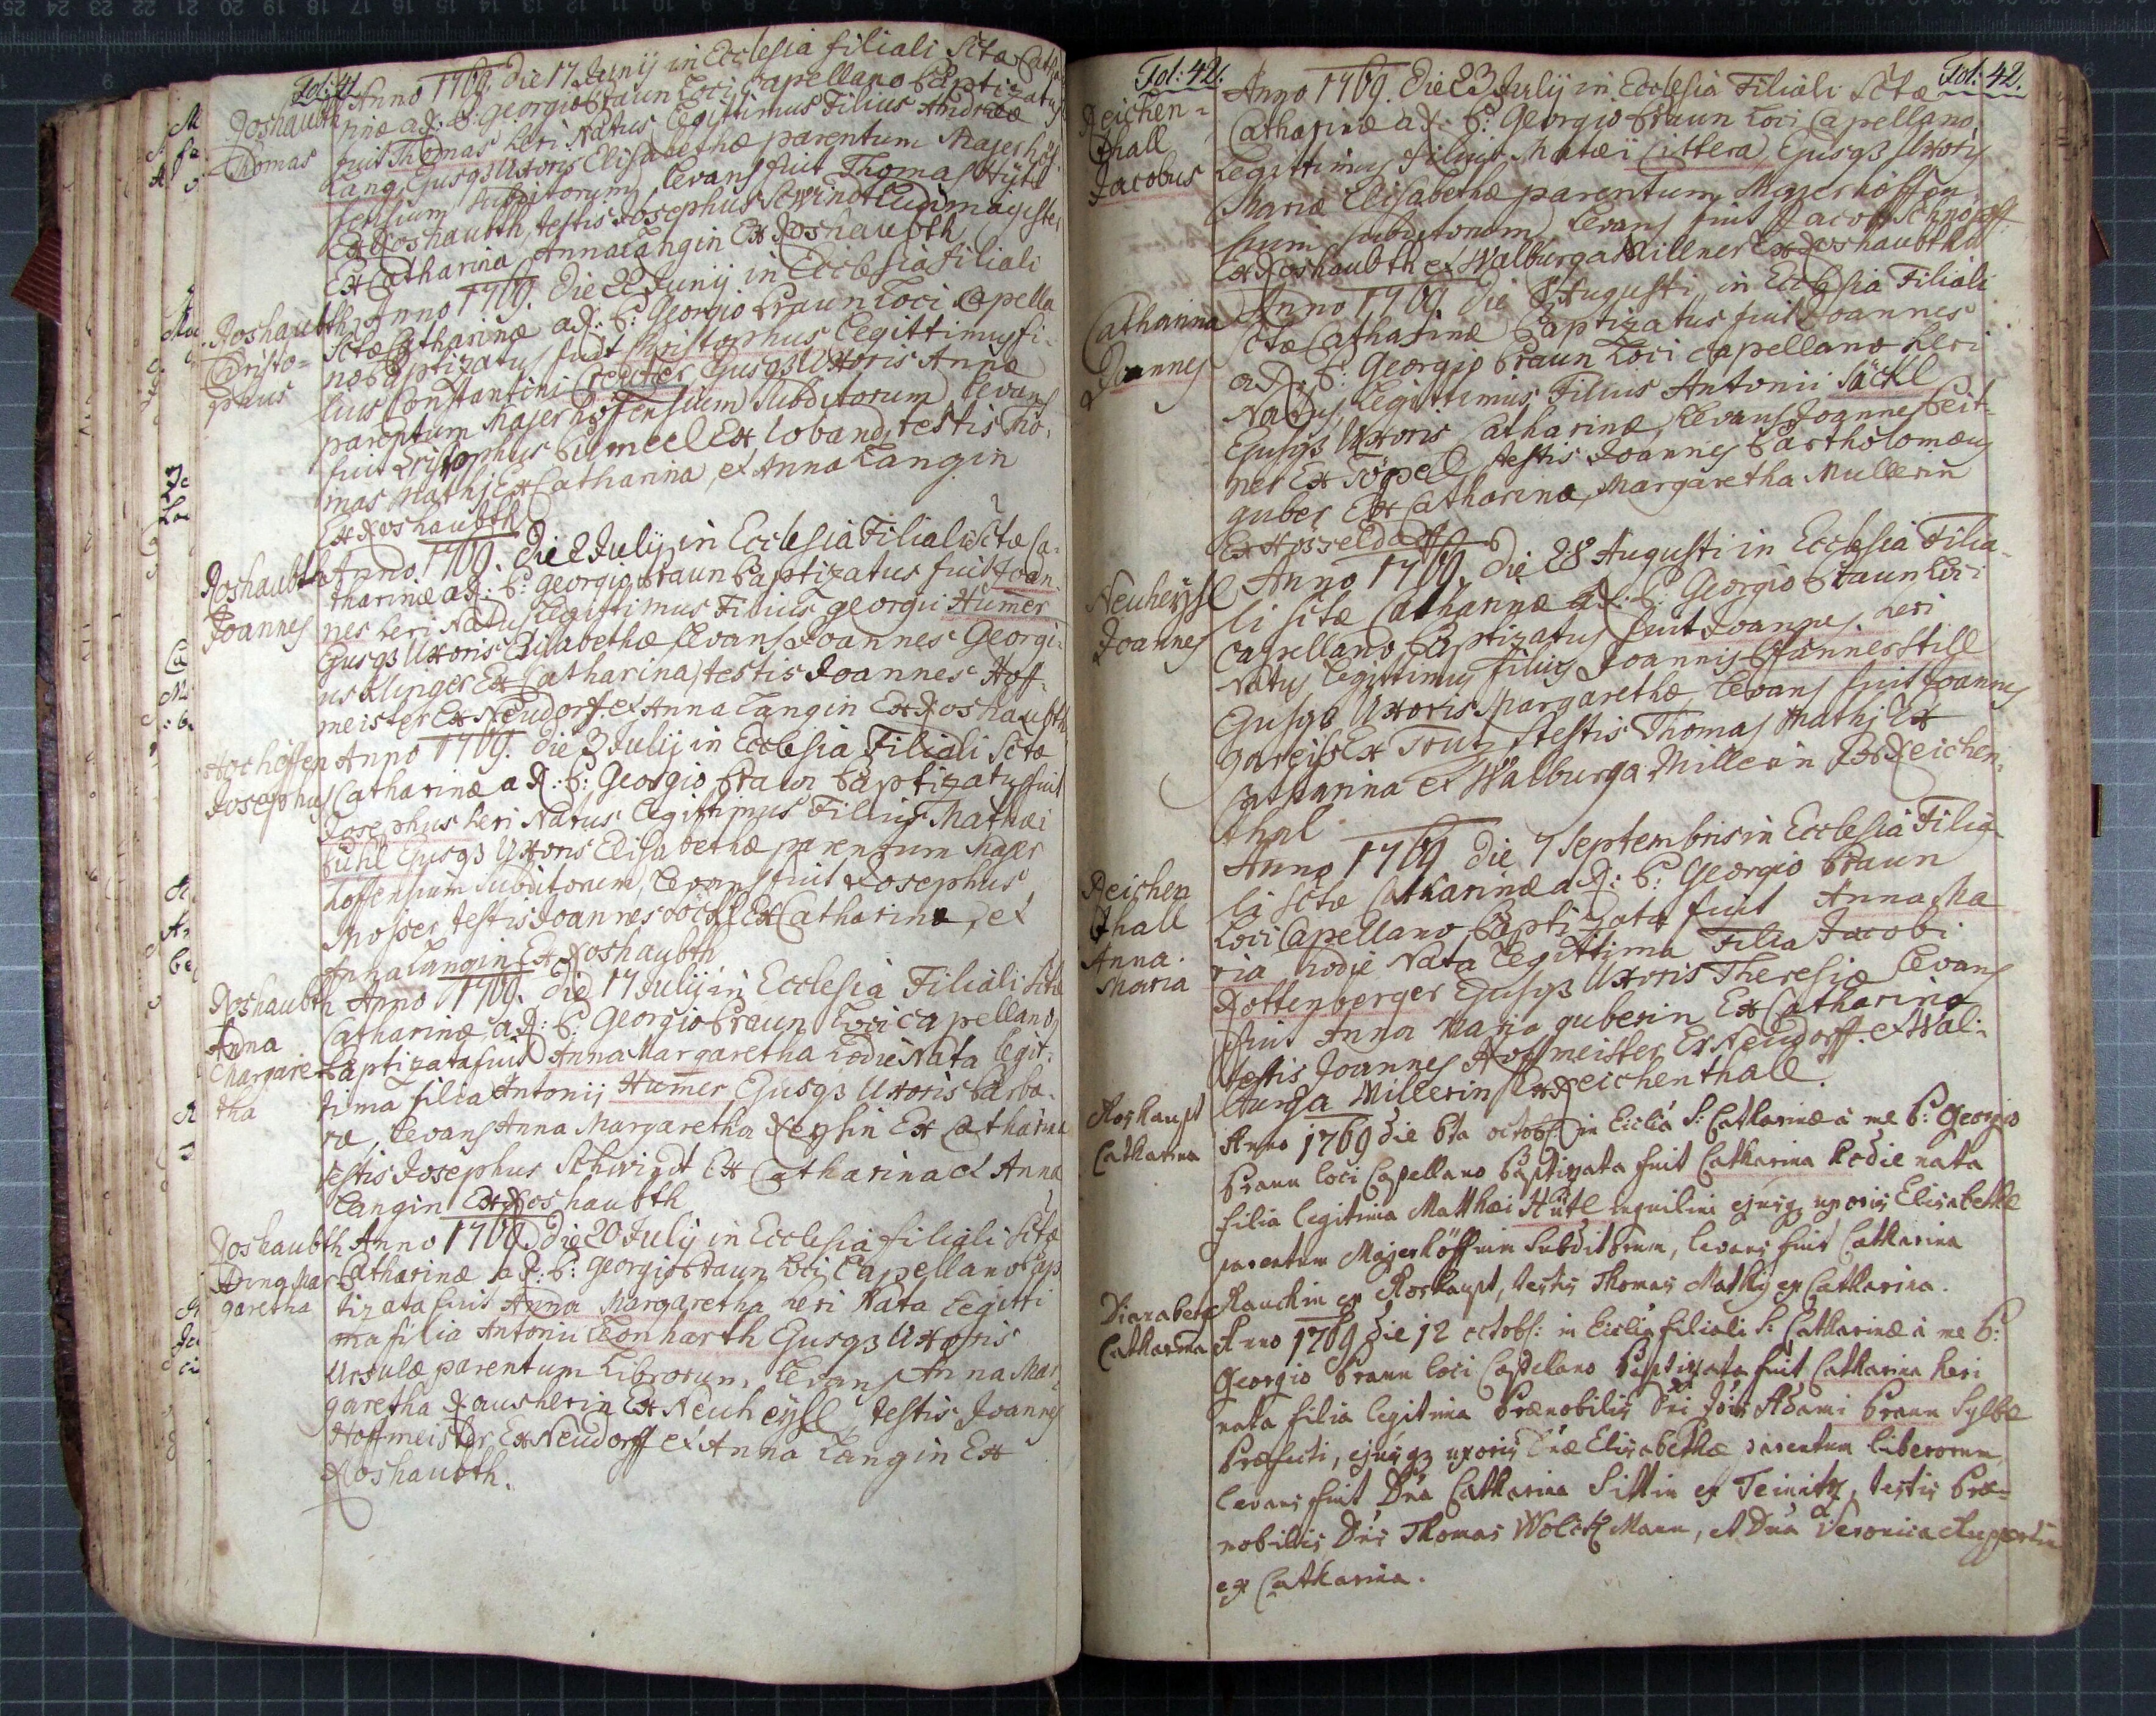 Fol: 41
Anno 1769. Die 17 Junij in Ecclesia filiali Sctæ Catha
Roshaubth
Thomas
rinæ a R: P: Georgio Braun Loci Capellano Baptizatus
fuit Thomas heri Natus Legittimus Filius Andreæ
Lang Ejusq3 Uxoris Elisabethæ parentum Majerhöf
fensium Subditorum, Levans fuit Thomas Hütl
Ex Roshaubth, testis Josephus Schwindt Ludimagister
Ex Catharina, Anna Langin Ex Roshaubth
Roshaubth
Christo=
phus
Anno 1769. Die 22 Junij in Ecclesia filiali
Sctæ Catharinæ a R: P: Georgio Braun Loci Capella
no Baptizatus fuit Christophus Legittimus fi=
lius Constantini Ejusq3 Uxoris Annæ
parentum Majerhöffensium Subditorum, Levans
fuit Cristophus Bümeel Ex testis Tho=
mas Mathj Ex Catharina, et Anna Langin
Ex Roshaubth
Roshaubth
Joannes
Anno 1769. Die 2 Julij in Ecclesia Filiali Sctæ Ca=
tharinæ a R: P: Georgio Braun Baptizatus fuit Joan
nes heri Natus Legittimus Filius georgii Humer
Ejusq3 Uxoris Elisabethæ Levans Joannes Georgi=
us Klinger Ex Catharina, testis Joannes Hoff=
meister Ex Neudorf. et Anna Langin Ex Roshaubth
Hochöffen
Josephus
Anno 1769. Die 3 Julij in Ecclesia Filiali Sctæ
Catharinæ a R: P: Georgio Braun Baptizatus fuit
Josephus heri Natus Legittimus Filius Mathæi
Bühl Ejusq3 Uxoris Elisabethæ parentum Majer
hoffensium Subditorum, Levans fuit Josephus
Mosser testis Joannes Ex Catharina, et
Anna Langin Ex Roshaubth
Roshaubth
Anna
Margare
tha
Anno 1769. Die 17 Julij in Ecclesia Filiali Sctæ
Catharinæ, a R: P: Georgio Braun Loci capellano,
Baptizata fuit Anna Margaretha hodie Nata legit=
tima filia Antonij Humer Ejusq3 Uxoris Barba=
ræ, Levans Anna Margaretha Ex Catharina
testis Josephus Schwindt Ex Catharina et Anna
Langin Ex Roshaubth
Roshaubth
Anna Mar
garetha
Anno 1769 Die 20 Julij in Ecclesia filiali Sctæ
Catharinæ a R: P: Georgio Braun Loci Capellano Bap
tizata fuit Anna Margaretha heri Nata Legitti
ma filia Antonii Leonharth Ejusq3 Uxoris
Ursulæ parentum Librorum, Levans Anna Mar
garetha Rauscherin Ex Neuheysl, testis Joannes
Hoffmeister Ex Neudorff et Anna Langin Ex
Roshaubth.
Fol: 42.
Fol: 42.
Reichen=
thall
Jacobus
Anno 1769. Die 23 Julij in Ecclesia Filiali Sctæ
Catharinæ a R: P: Georgio Braun Loci Capellano,
Legittimus filius Matæi Littera, Ejusq3 Uxoris
Mariæ Elisabethæ parentum Majerhöffen
sium Subditorum, Levans fuit Jacob
Ex Roshaubth et Walburga Millner Ex Roshaubth
Catharina
Joannes
Anno 1769 Die 8 Augusti in Ecclesia Filiali
Sctæ Catharinæ Baptizatus fuit Joannes
a R: P: Georgio Braun Loci capellano heri
Natus, Legittimus Filius Antonii Säckl
Ejusq3 Uxoris Catharinæ, Levans Joannes Beit=
ner Ex testis Joannes Bartholomæus
guber Ex Catharina, Margaretha Mullerin
Ex
Neuheysl
Joannes
Anno 1769. Die 28 Augusti in Ecclesia Filia
li Sctæ Catharinæ a R: P: Georgio Braun Loci
Capellano, Baptizatus fuit Joannes, heri
Natus Legittimus filius Joannis Pfannerstill
Ejusq3 Uxoris Margarethæ Levans fuit Joannes
gareiss Ex testis Thomas Mathj Ex
Catharina et Walburga Millerin Ex Reichen=
thal
Reichen
thall
Anna
Maria
Anno 1769 Die 7 Septembris in Ecclesia Filia
li Sctæ Catharinæ a R: P: Georgio Braun
Loci Capellano Baptizata fuit Anna Ma
ria hodie Nata Legittima Filia Jacobi
Rottenberger Ejusq3 Uxoris Theresiæ Levans
fuit Anna Maria guberin Ex Catharina
testis Joannes Hoffmeister Ex Neudorff. et Wal=
burga Millerin Ex Reichenthall.
Roshaupt
Catharina
Anno 1769 die 6ta octob: in Ecclia S: Catharinæ à me P: Georgio
Braun loci Capellano Baptizata fuit Catharina hodie nata
filia legitima Matthæi Hütl inquilini ejusq3 uxoris Elisabethæ
parentum Majerhöffium Subditorum, levans fuit Catharina
Rauchin ex Roshaupt, testis Thomas Mathj ex Catharina.
Dianaberg
Catharina
Anno 1769 die 12 octob: in Ecclia filiali S: Catharinæ à me P:
Georgio Braun loci Capellano Baptizata fuit Catharina heri
nata filia legitima Prænobilis Dni Jois Adami Braun Sylvæ
Præfecti, ejusq3 uxoris Dnæ Elisabethæ parentum liberorum
levans fuit Dna Catharina Sittin ex Teinitz, testis Præ=
nobilis Dns Thomas Woltz Mann, et Dna Veronica Ruppertin
ex Catharina.